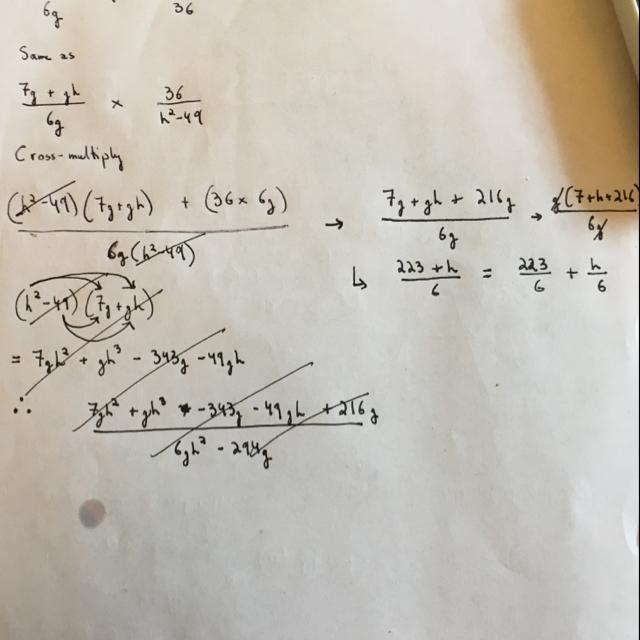 6g 36
Same as
7g + gh / 6g × 36 / h²-49
Cross-multiply
(h²-49)(7g+gh) + (36 × 6g) / 6g(h²-49) → 7g+gh + 216g / 6g → g(7+h+216 / 6g
↳ 223 + h / 6 = 223 / 6 + h / 6
(h²-49)(7g+gh)
= 7gh² + gh³ - 343g - 49gh
∴ 7gh² + gh³ - 343g - 49gh + 216g / 6gh² - 294g